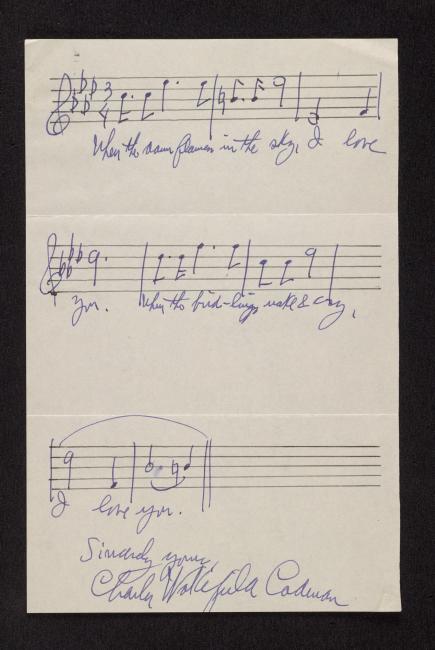 When the dawn flames in the sky, I love
you. When the bird-lings wake & cry,
I love you.
Sincerely yours,
Charles Wakefield Cadman